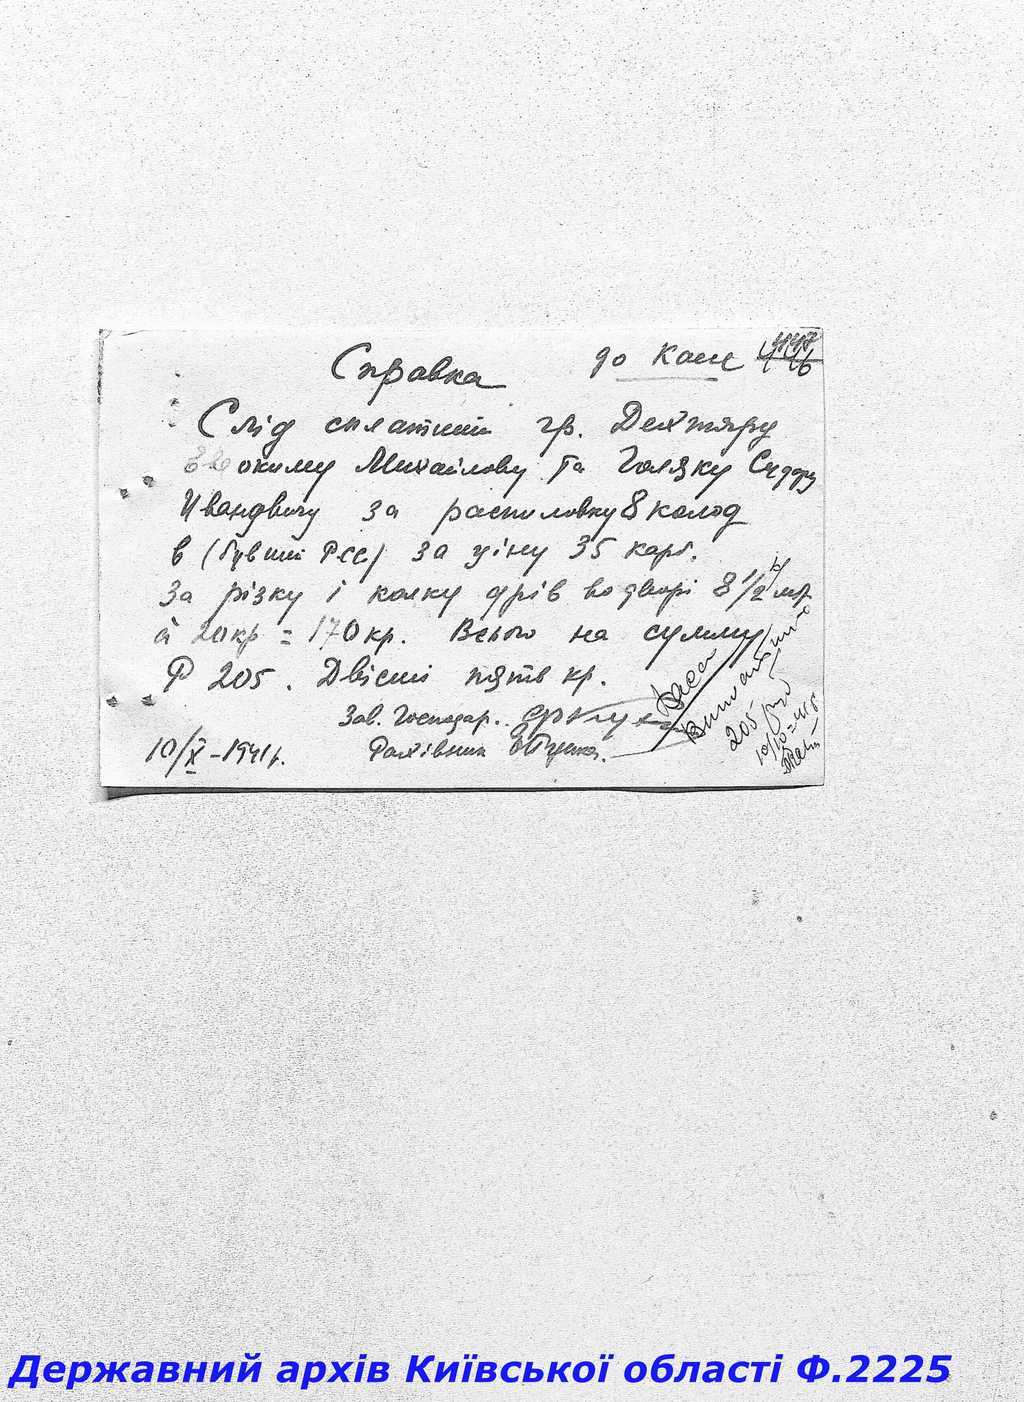 Справка
до каси
Слід сплатити гр. Дехтяру
Евдокиму Михайлову та Голяку Сидору
Ивановичу за распиловку 8 колод
в (бувший Рсс) за ціну 35 карб.
За різку і колку дрів во дворі 8 1/2
à 20 кр = 170 кр. Всього на сумму
Р 205. Двісті пять кр.
Зав. Господар.
Рахівник
10/X - 1941 р.
Виплатить
205
Державний архів Київської області Ф.2225